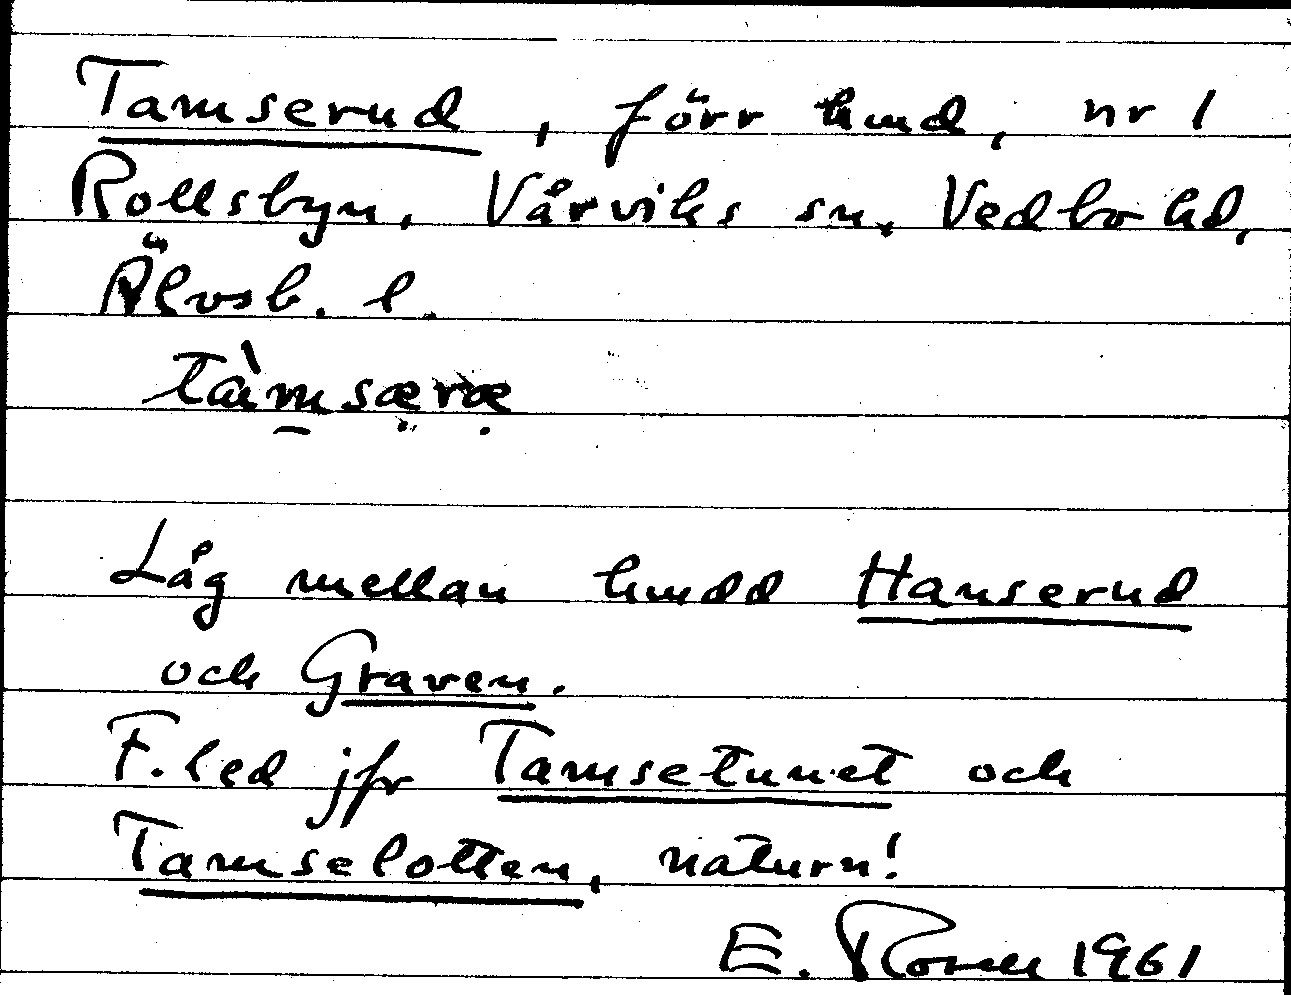 Tamserud, förr hmd, nr 1
Rollsbyn, Vårviks sn, Vedbo hd,
Älvsb. l.
tàmsæræ
Låg mellan hmdd Hanserud
och Graven.
F. led jfr Tamsetunet och
Tamselotten, naturn!
E. 1961